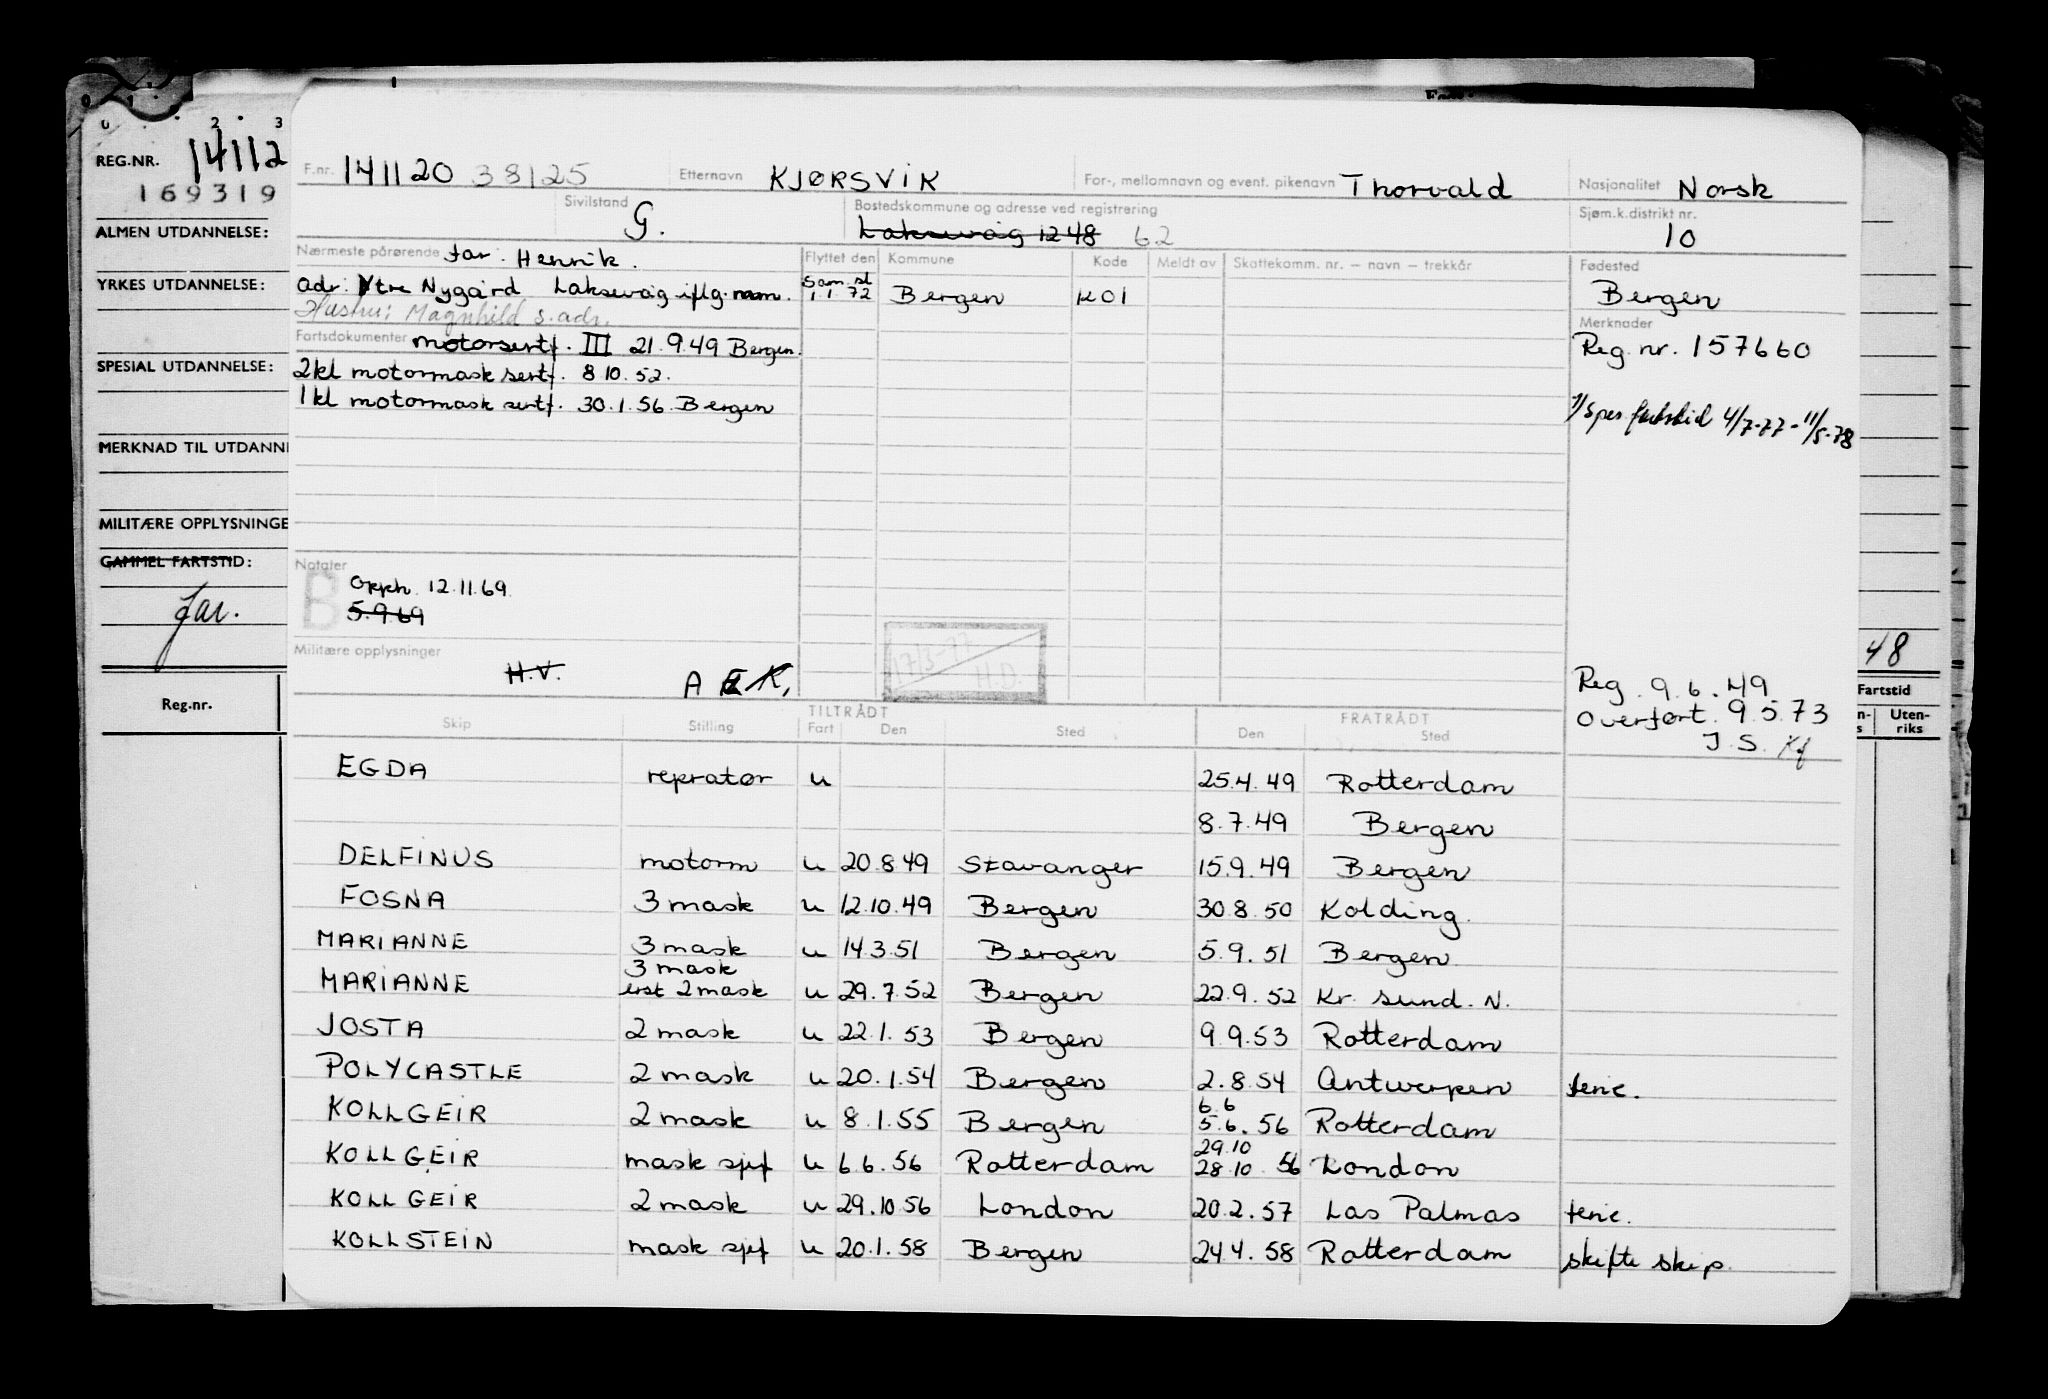 0 . . 2 . 3
REG.NR. 14112
169319
ALMEN UTDANNELSE:
YRKES UTDANNELSE:
SPESIAL UTDANNELSE:
MERKNAD TIL UTDANN
MILITÆRE OPPLYSNINGE
GAMMEL FARTSTID:
far.
Reg.nr.
F.nr. 141120 38125 Etternavn KJØRSVIK For-, mellomnavn og event. pikenavn Thorvald Nasjonalitet Norsk
Sivilstand G. Bostedskommune og adresse ved registrering Laksevåg 1248 62 Sjøm.k.distrikt nr. 10
Nærmeste pårørende far: Henrik. Flyttet den Kommune Kode Meldt av Skattekomm. nr. – navn – trekkår Fødested
adr: Ytre Nygård Laksevåg iflg. mm. Sam. st 1.1.72 Bergen Bergen
Hustru: Magnhild s. adr.
Merknader
Fartsdokumenter motorsertf. III 21.9.49 Bergen. Reg. nr. 157660
2kl motormask sertf. 8 10. 52.
1kl motormask sertf. 30.1.56 Bergen
1/spes fartstid 4/7-77 - 11/5-78
Notater
B Opph. 12.11.69.
5.9.69
Militære opplysninger
H.V. A K.
17/3-77
H.D.
Reg. 9.6.49
Overført. 9.5.73
J.S. Kf
48
Fartstid
Uten-
riks
TILTRÅDT FRATRÅDT
Skip Stilling Fart Den Sted Den Sted
EGDA repratør u 25.4.49 Rotterdam
8.7.49 Bergen
DELFINUS motorm u 20.8.49 Stavanger 15.9.49 Bergen
FOSNA 3 mask u 12.10.49 Bergen 30.8.50 Kolding.
MARIANNE 3 mask u 14.3.51 Bergen 5.9.51 Bergen
MARIANNE 3 mask erst 2 mask u 29.7.52 Bergen 22.9.52 Kr. sund. N.
JOSTA 2 mask u 22.1.53 Bergen 9.9.53 Rotterdam
POLYCASTLE 2 mask u 20.1.54 Bergen 2.8.54 Antwerpen ferie.
KOLLGEIR 2 mask u 8.1.55 Bergen 6.6 5.6.56 Rotterdam
KOLLGEIR mask sjef u 6.6.56 Rotterdam 29.10 28.10 56 London
KOLLGEIR 2 mask u 29.10.56 London 20.2.57 Las Palmas ferie.
KOLLSTEIN mask sjef u 20.1.58 Bergen 24.4.58 Rotterdam skifte skip.